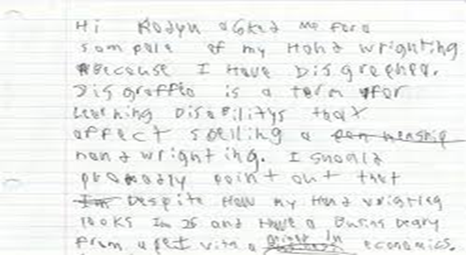 Hi Rodyn asked me for a
sompole of my Hand wrighting
Because I Have Disgrephea.
Disgraffie is a term for
Learning Disabilitys that
affect spelling a
hand wrighting. I should
probably point out that
Despite How my Hand wrighting
looks Im 25 and Have a
From a vith a economics.